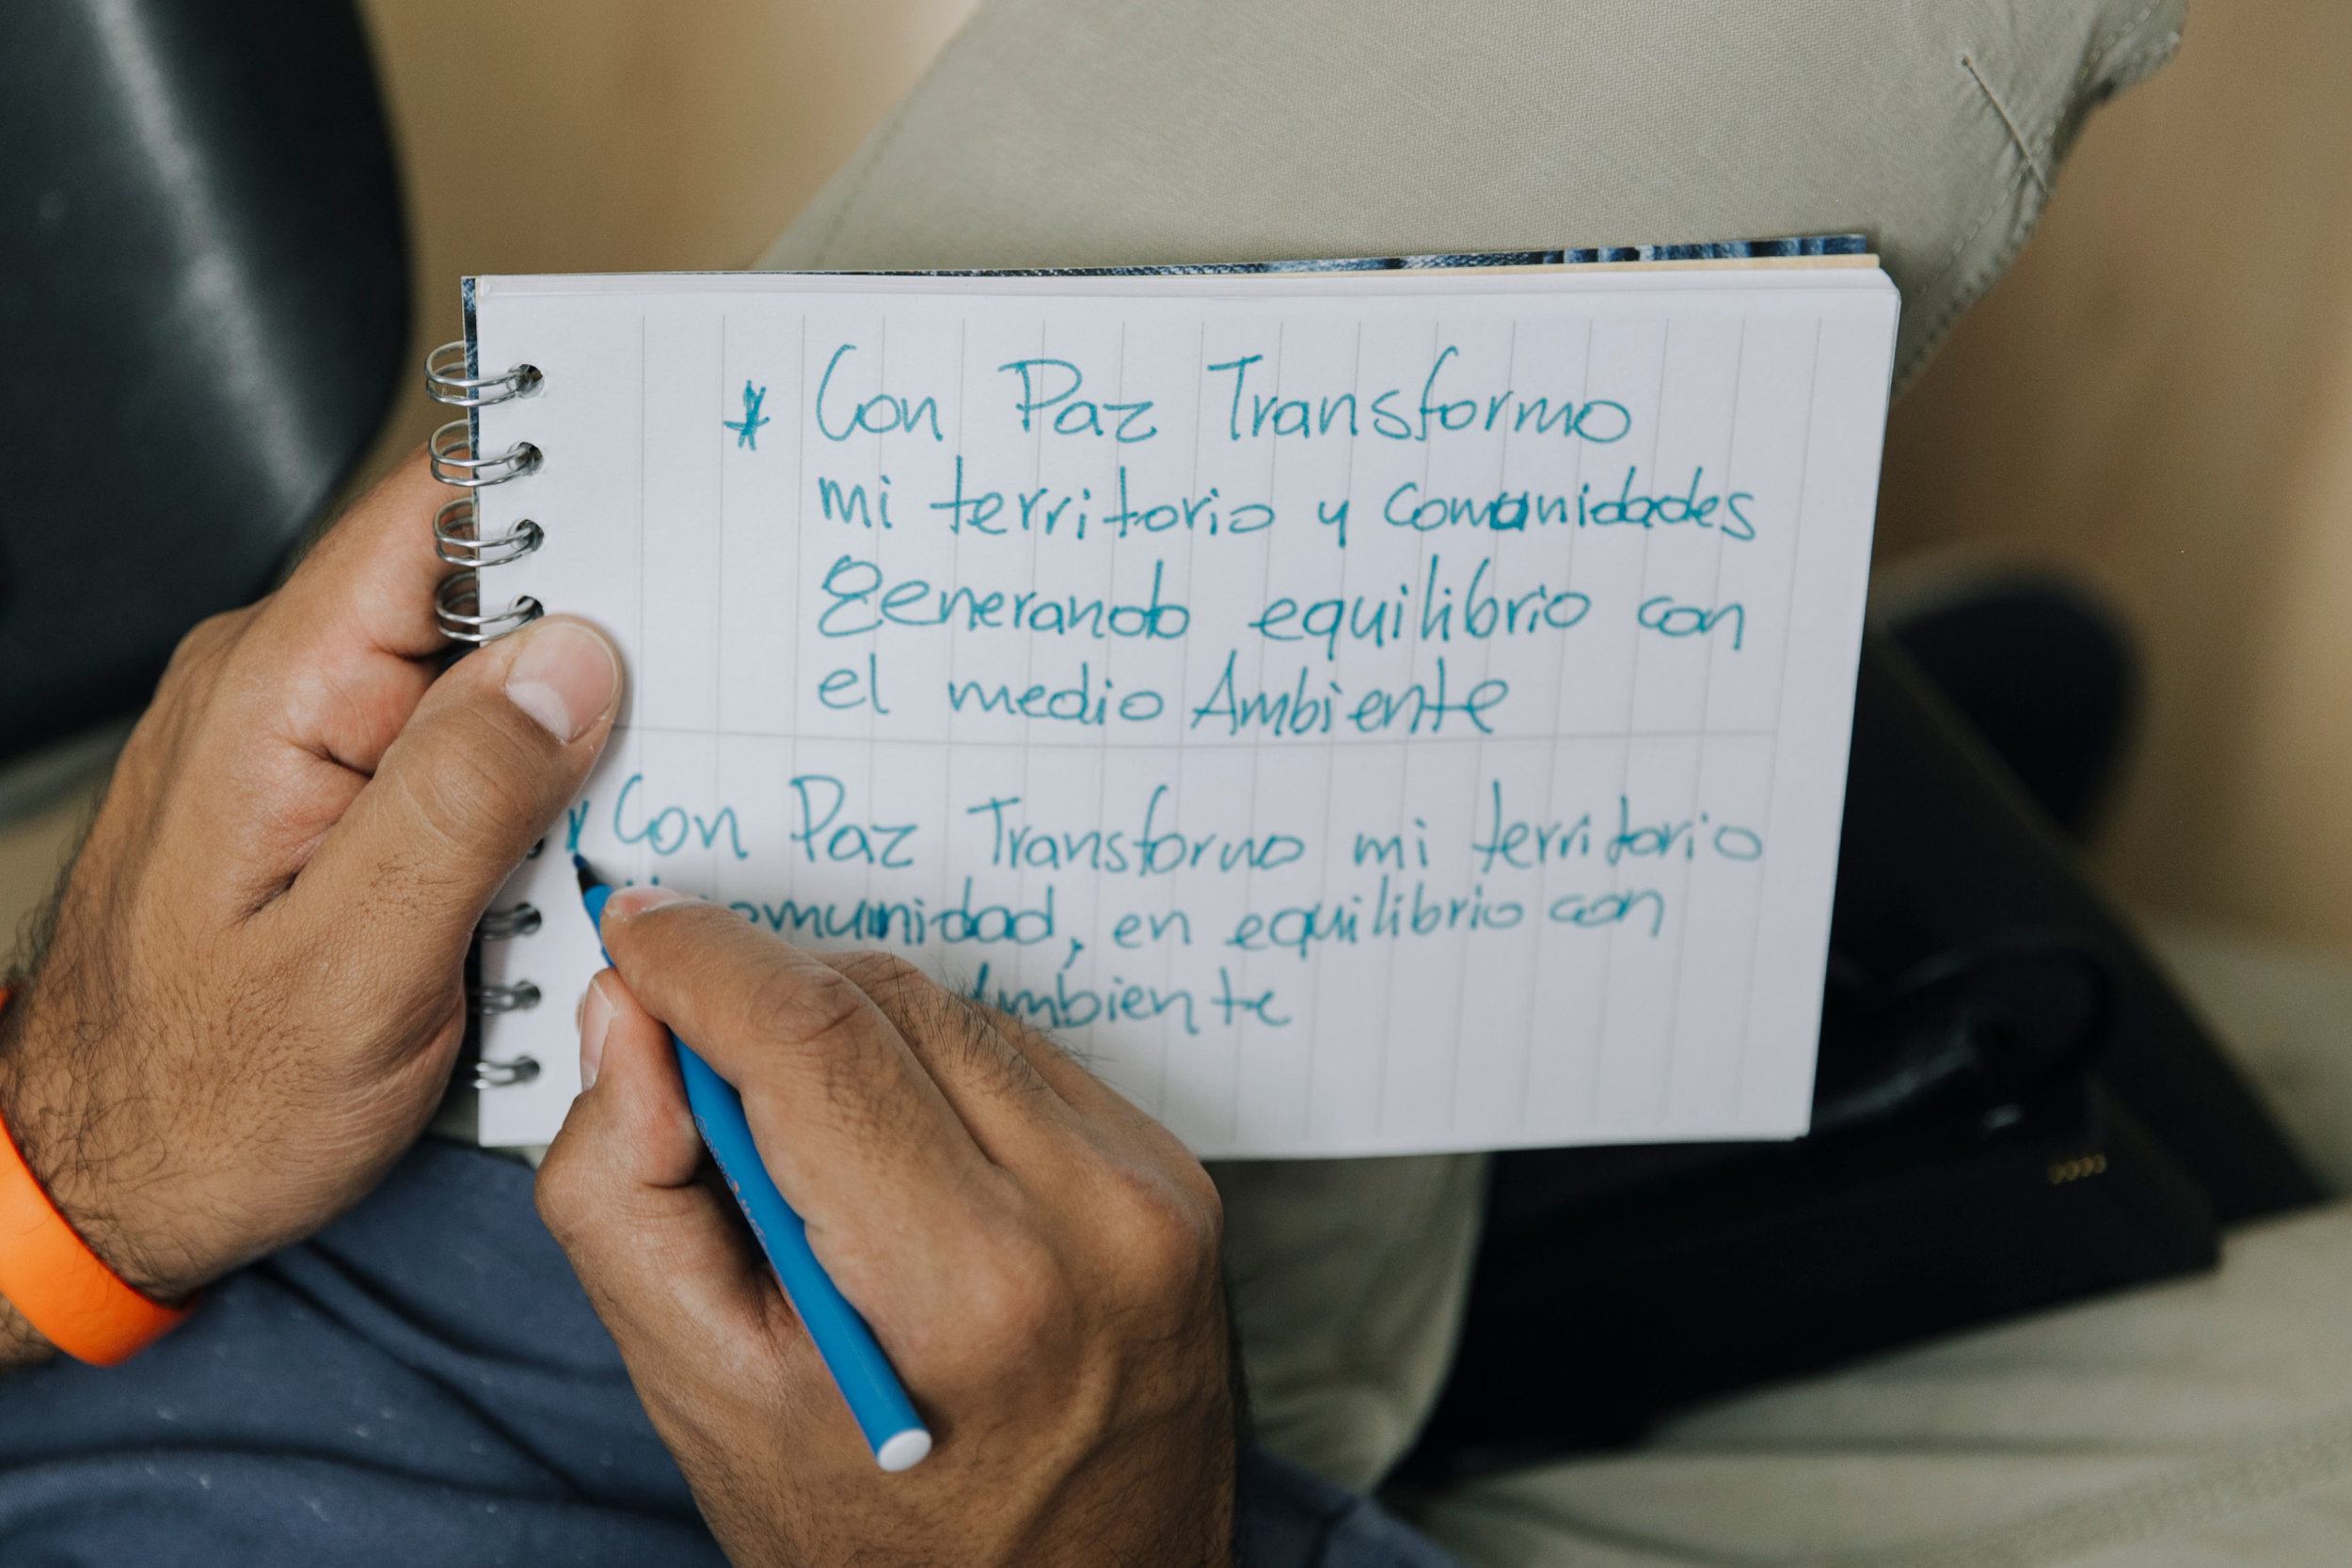 * Con Paz Transformo
mi territorio y comunidades
generando equilibrio con
el medio Ambiente
Con Paz Transformo mi territorio
comunidad, en equilibrio con
Ambiente